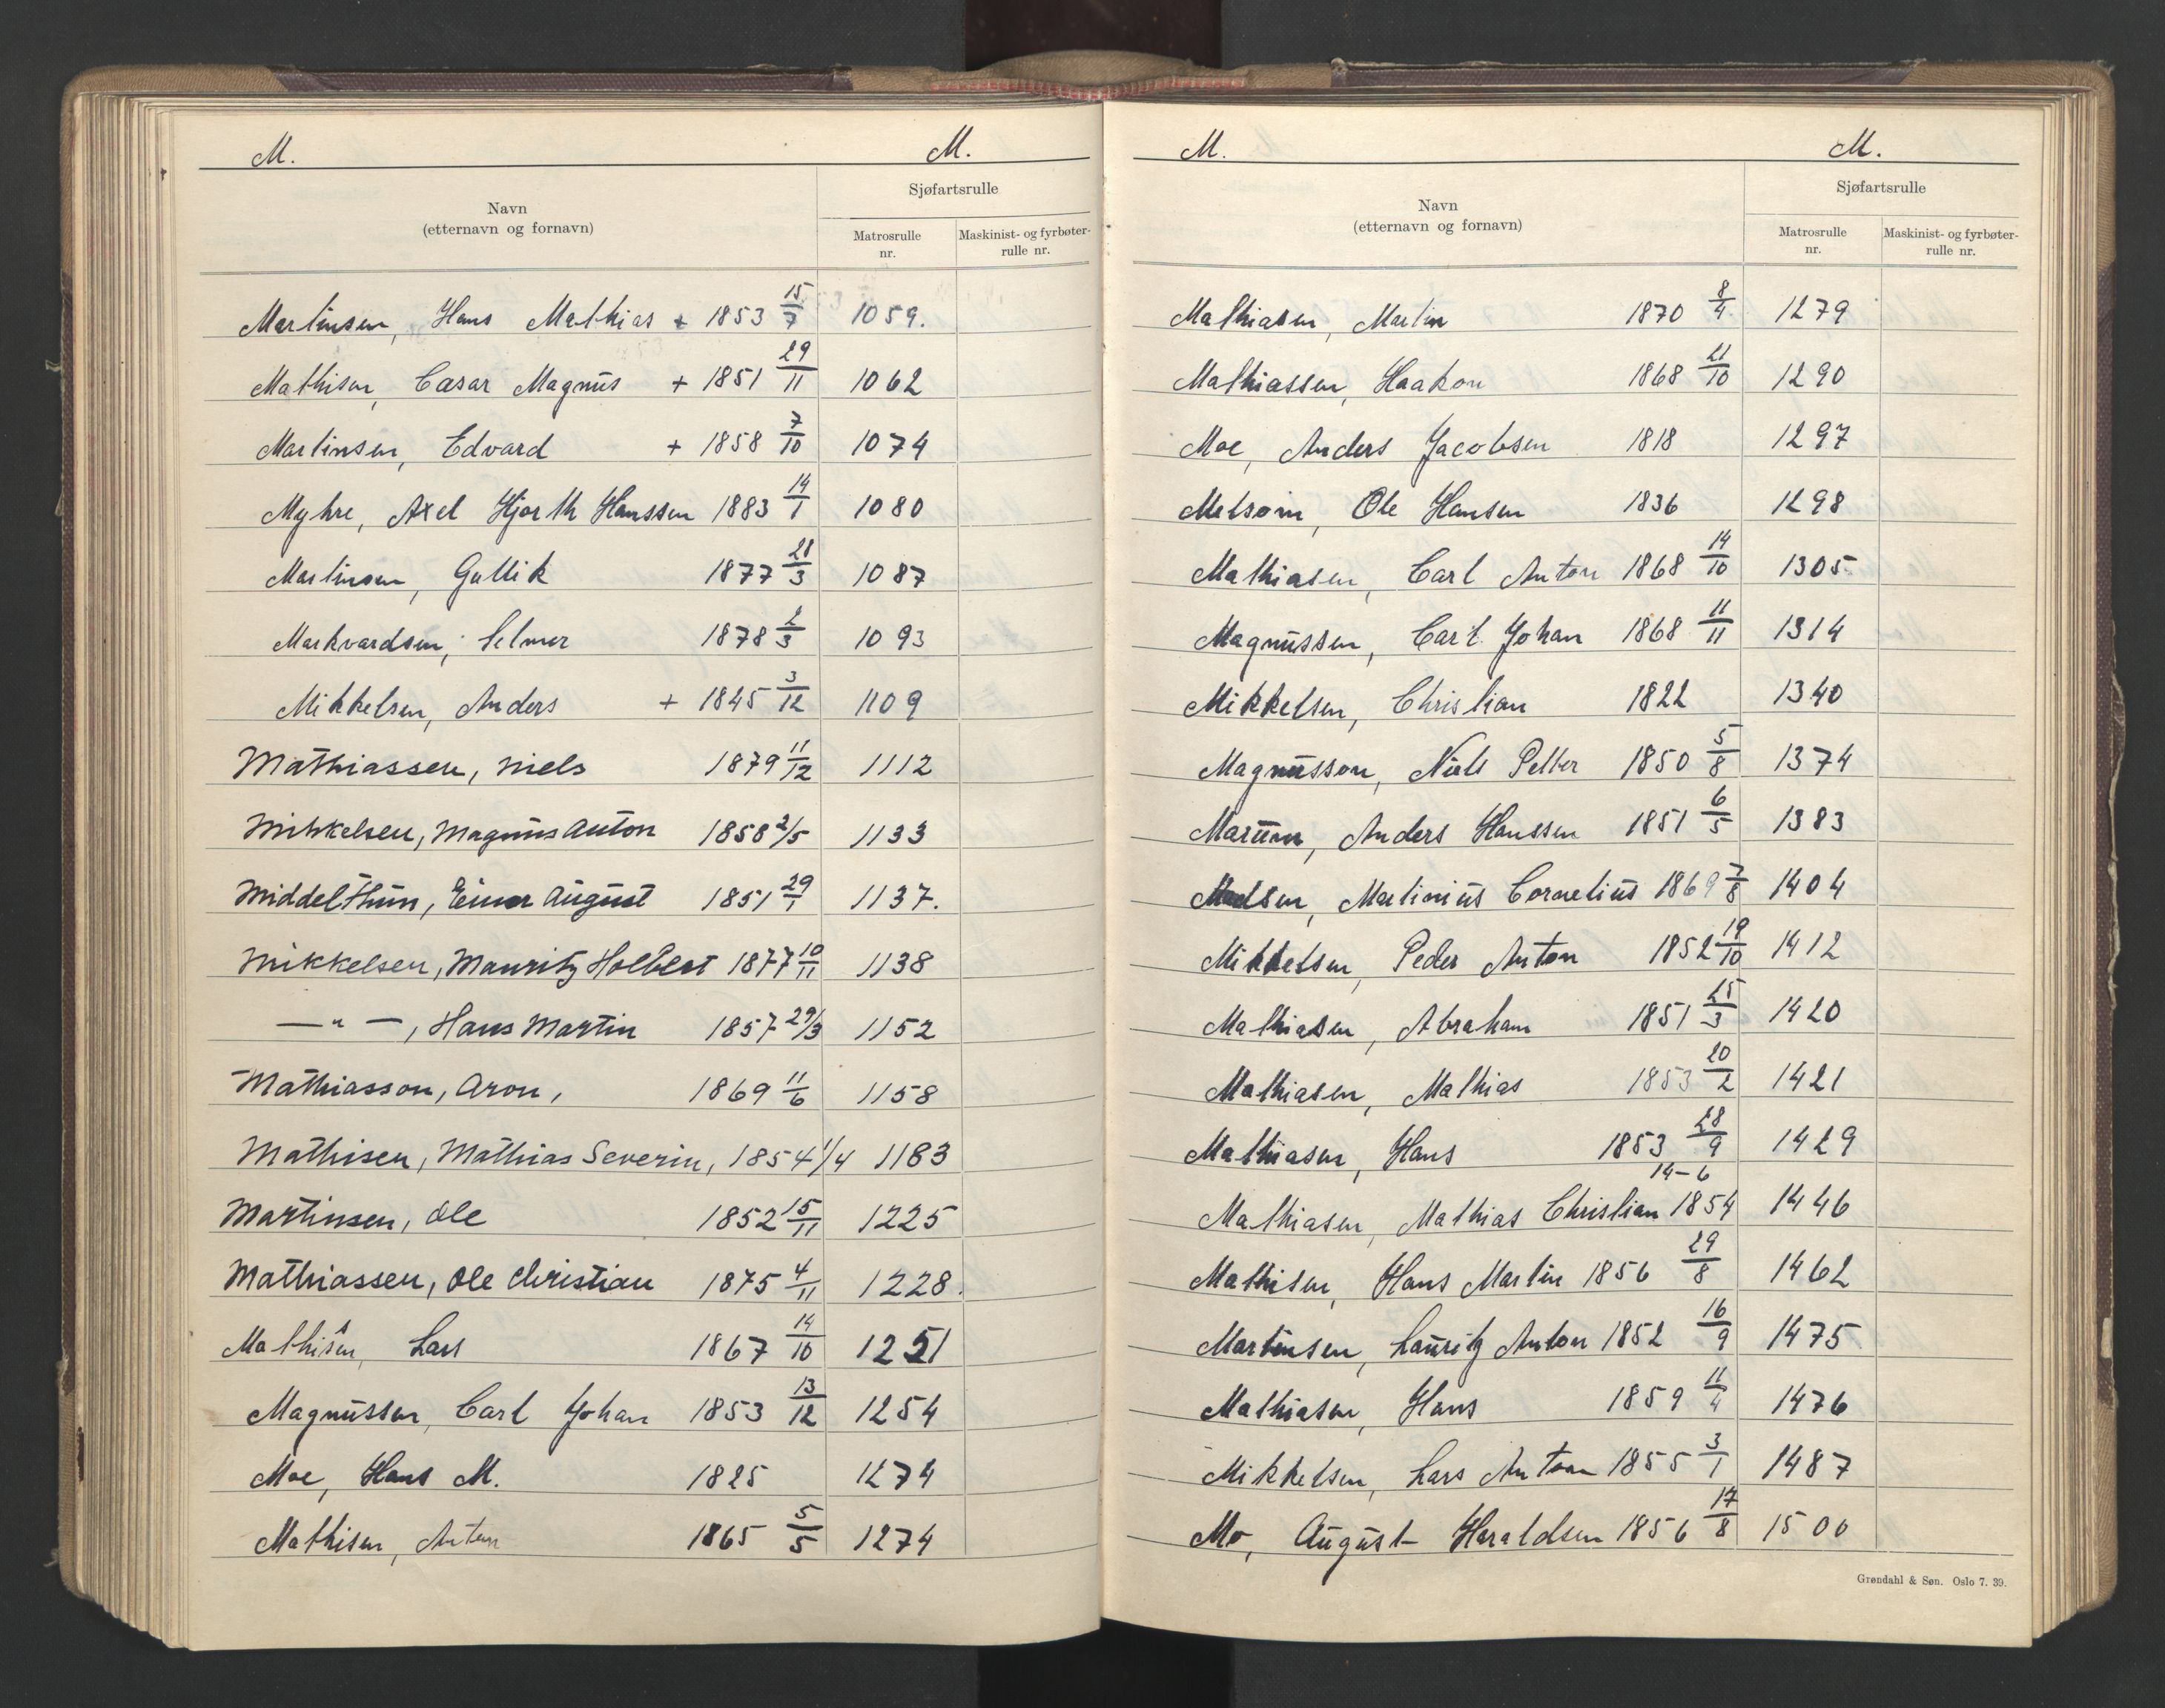 M. M.
Navn
(etternavn og fornavn)
Sjøfartsrulle
Matrosrulle nr.
Maskinist- og fyrbøter-rulle nr.
Martinsen, Hans Mathias + 1853 15/7 1059.
Mathisen, Cæsar Magnus + 1851 29/11 1062
Martinsen, Edvard + 1858 7/10 1074
Myhre, Axel Hjorth Hanssen 1883 14/1 1080
Martinsen, Gullik 1877 21/3 1087
Markvardsen, Selmer 1878 2/3 1093
Mikkelsen, Anders + 1845 3/12 1109
Mathiassen, Niels 1879 11/12 1112
Mikkelsen, Magnus Anton 1858 2/5 1133
Middelthun, Einar August 1851 29/1 1137.
Mikkelsen, Mauritz Holbert 1877 10/11 1138
—"—, Hans Martin 1857 29/3 1152
Mathiasson, Aron, 1869 11/6 1158
Mathisen, Mathias Severin, 1854 1/4 1183
Martinsen, Ole 1852 15/11 1225
Mathiassen, Ole Christian 1875 4/11 1228.
Mathisen, Lars 1867 14/10 1251
Magnussen, Carl Johan 1853 13/12 1254
Moe, Hans M. 1825 1274
Mathisen, Anton 1865 5/5 1274
M. M.
Navn
(etternavn og fornavn)
Sjøfartsrulle
Matrosrulle nr.
Maskinist- og fyrbøter-rulle nr.
Mathiasen, Martin 1870 8/4 1279
Mathiassen, Haakon 1868 21/10 1290
Moe, Anders Jacobsen 1818 1297
Melsom, Ole Hansen 1836 1298
Mathiasen, Carl Anton 1868 14/10 1305
Magnussen, Carl Johan 1868 11/11 1314
Mikkelsen, Christian 1822 1340
Magnusson, Niels Petter 1850 5/8 1374
Marum, Anders Hanssen 1851 6/5 1383
Madsen, Martinius Cornelius 1869 7/8 1404
Mikkelsen, Peder Anton 1852 19/10 1412
Mathiasen, Abraham 1851 25/3 1420
Mathiasen, Mathias 1853 20/2 1421
Mathiasen, Hans 1853 28/9 1429
Mathiasen, Mathias Christian 14-6 1854 1446
Mathisen, Hans Martin 1856 29/8 1462
Martinsen, Lauritz Anton 1852 16/9 1475
Mathiasen, Hans 1859 11/4 1476
Mikkelsen, Lars Anton 1855 3/1 1487
Mo, August Haraldsen 1856 17/8 1500
Grøndahl & Søn. Oslo 7. 39.